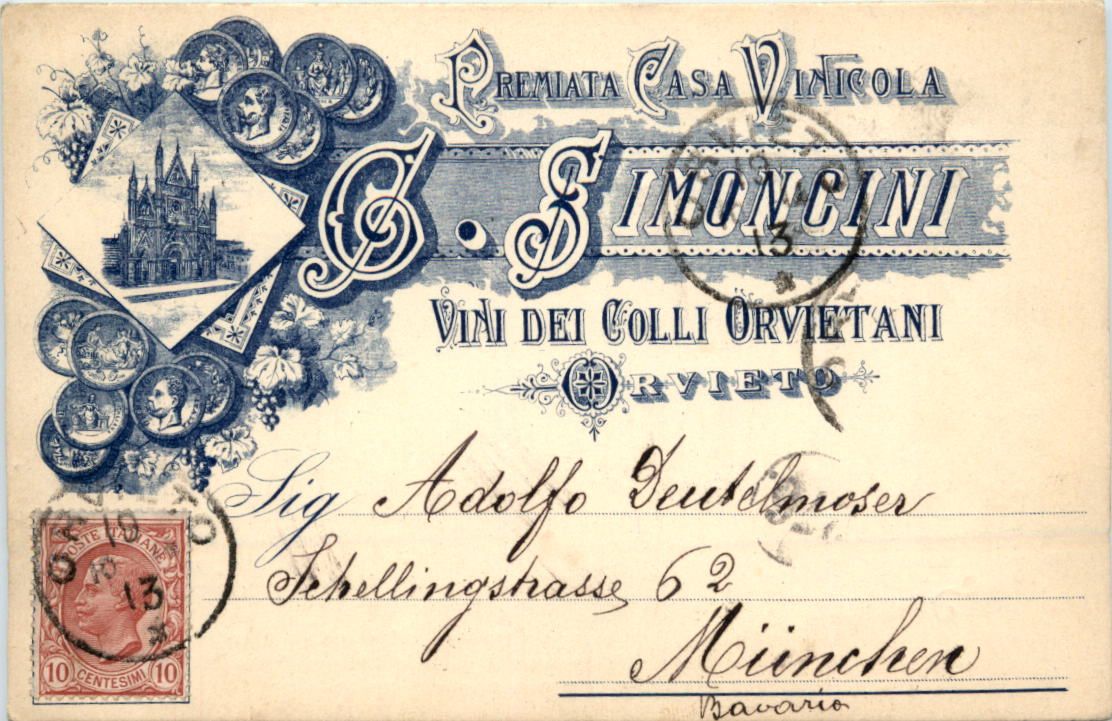 PREMIATA CASA VINICOLA
G. SIMONCINI
VINI DEI COLLI ORVIETANI
ORVIETO
Sig Adolfo Deutelmoser
Schellingstrasse 62
München
Bavaria
ORVIETO
13
POSTE ITALIANE
10 CENTESIMI 10
ORVIETO
10
13